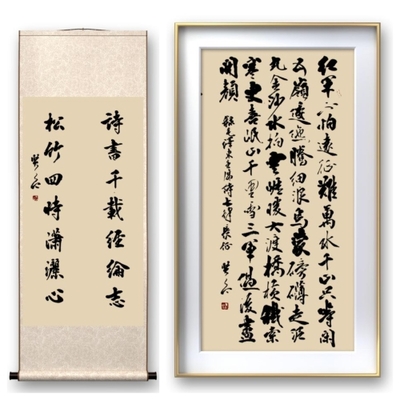 詩書千載經綸志
松竹四時瀟灑心
紅軍不怕遠征難萬水千山只等閑
五嶺逶迤騰細浪烏蒙磅礴走泥
丸金沙水拍雲崖暖大渡橋横鐵索
寒更喜岷山千里雪三軍過後盡
開顏 錄毛澤東主席詩七律長征